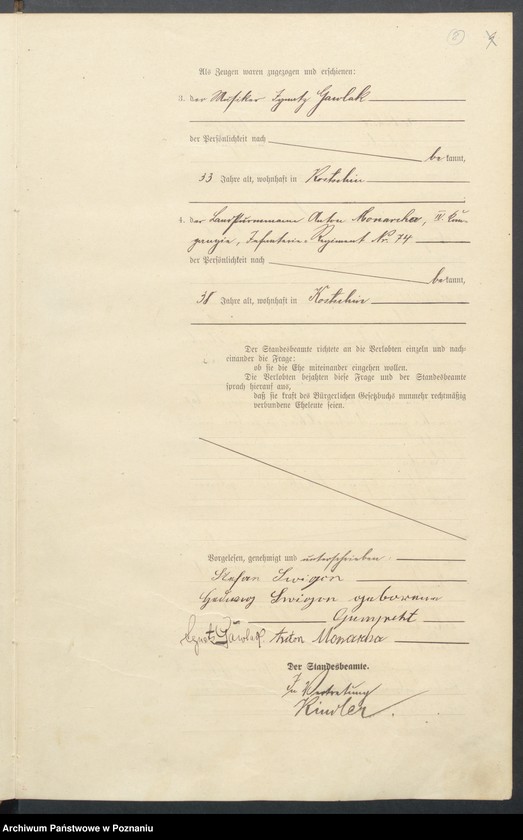 2
Als Zeugen waren zugezogen und erschienen:
3. der Musiker Ignatz Gawlak
der Persönlichkeit nach
bekannt,
33 Jahre alt, wohnhaft in Kostschin
4. der Landsturmmann Anton Monarcha,
Infanterie Regiment Nr. 74
der Persönlichkeit nach
bekannt,
38 Jahre alt, wohnhaft in Kostschin
Der Standesbeamte richtete an die Verlobten einzeln und nach-
einander die Frage:
ob sie die Ehe miteinander eingehen wollen.
Die Verlobten bejahten diese Frage und der Standesbeamte
sprach hierauf aus,
daß sie kraft des Bürgerlichen Gesetzbuchs nunmehr rechtmäßig
verbundene Eheleute seien.
Vorgelesen, genehmigt und unterschrieben
Stefan Swigon
Hedwig Swigon geborene
Gumprecht
Ignatz Gawlak Anton Monarcha
Der Standesbeamte.
In Vertretung
Kindler.
Archiwum Państwowe w Poznaniu